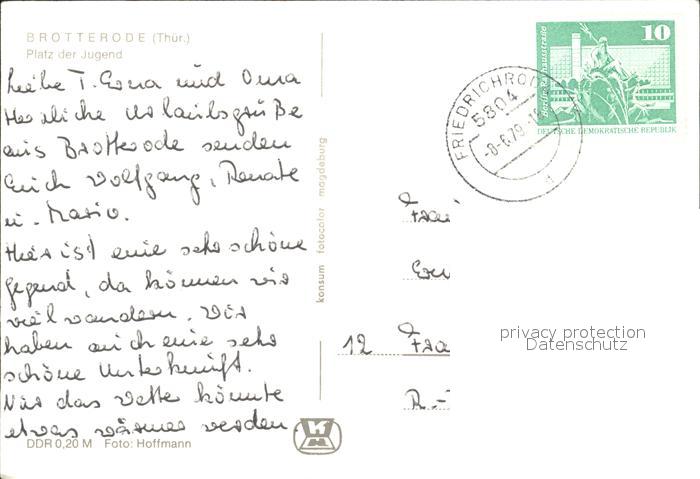 BROTTERODE (Thür.)
Platz der Jugend
Liebe T. Erna und Oma
Herzliche Urlaubsgrüße
aus Brotterode senden
Euch Wolfgang, Renate
u. Mario.
Hier ist eine sehr schöne
Gegend, da können wir
viel wandern. Wir
haben auch eine sehr
schöne Unterkunft.
Nur das Wetter könnte
etwas wärmer werden
DDR 0,20 M Foto: Hoffmann
konsum fotocolor magdeburg
FRIEDRICHRODA
5804
-8-6.79-18
10
Berlin, Rathausstraße
DEUTSCHE DEMOKRATISCHE REPUBLIK
12 Fra
privacy protection
Datenschutz